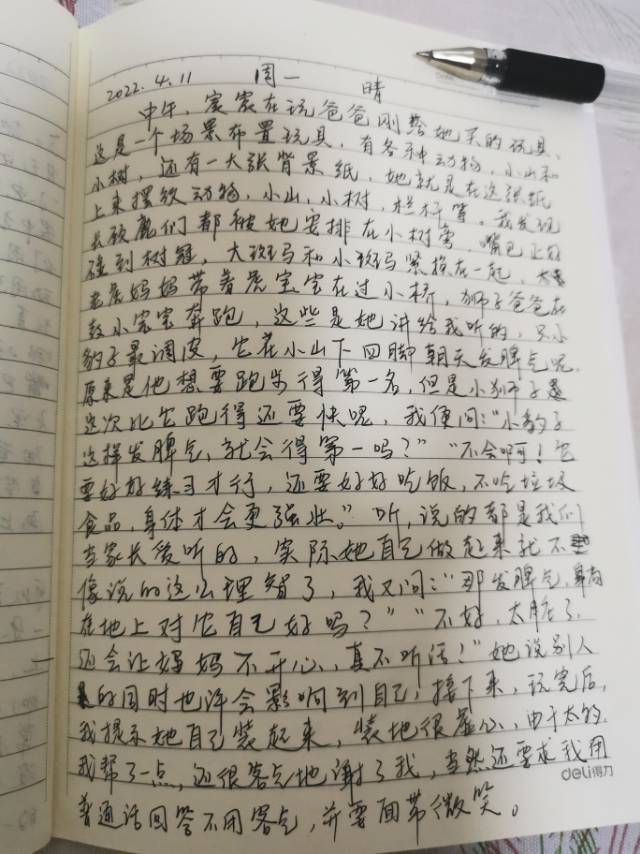 2022.4.11 周一 晴
中午,宸宸在玩爸爸刚给她买的玩具、
这是一个场景布置玩具,有各种动物,小山和
小树,还有一大张背景纸,她就是在这张纸
上来摆放动物,小山,小树,栏杆等,我发现
长颈鹿们都被她安排在小树旁,嘴巴正好
碰到树冠,大斑马和小斑马紧挨在一起,
老虎妈妈带着虎宝宝在过小桥,狮子爸爸在
教小宝宝奔跑,这些是她讲给我听的,只小
豹子最调皮,它在小山下四脚朝天发脾气呢,
原来是他想要跑步得第一名,但是小狮子
这次比它跑得还要快呢,我便问:“小豹子
这样发脾气,就会得第一吗?”“不会啊!它
要好好练习才行,还要好好吃饭,不吃垃圾
食品,身体才会更强壮。”听,说的都是我们
当家长爱听的,实际她自己做起来就不
像说的这么理智了,我又问:“那发脾气,躺
在地上对它自己好吗?”“不好,太脏了,
还会让妈妈不开心,真不听话!”她说别人
的同时也许会影响到自己,接下来,玩完后,
我提示她自己装起来,装地很虚心,由于太多,
我帮了一点,还很客气地谢了我,当然还要求我用
普通话回答不用客气,并要面带微笑。
deli得力